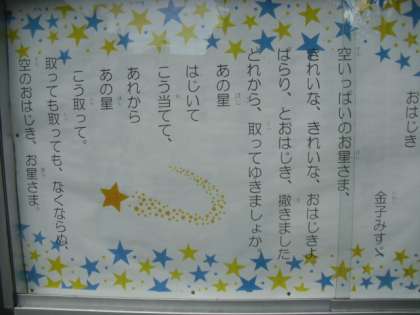 おはじき
金子みすゞ
空いっぱいのお星さま、
きれいな、きれいな、おはじきよ
ぱらり、とおはじき、撒きました、
どれから、取ってゆきましょか。
あの星
はじいて
こう当てて、
あれから
あの星
こう取って。
取っても取っても、なくならぬ、
空のおはじき、お星さま。